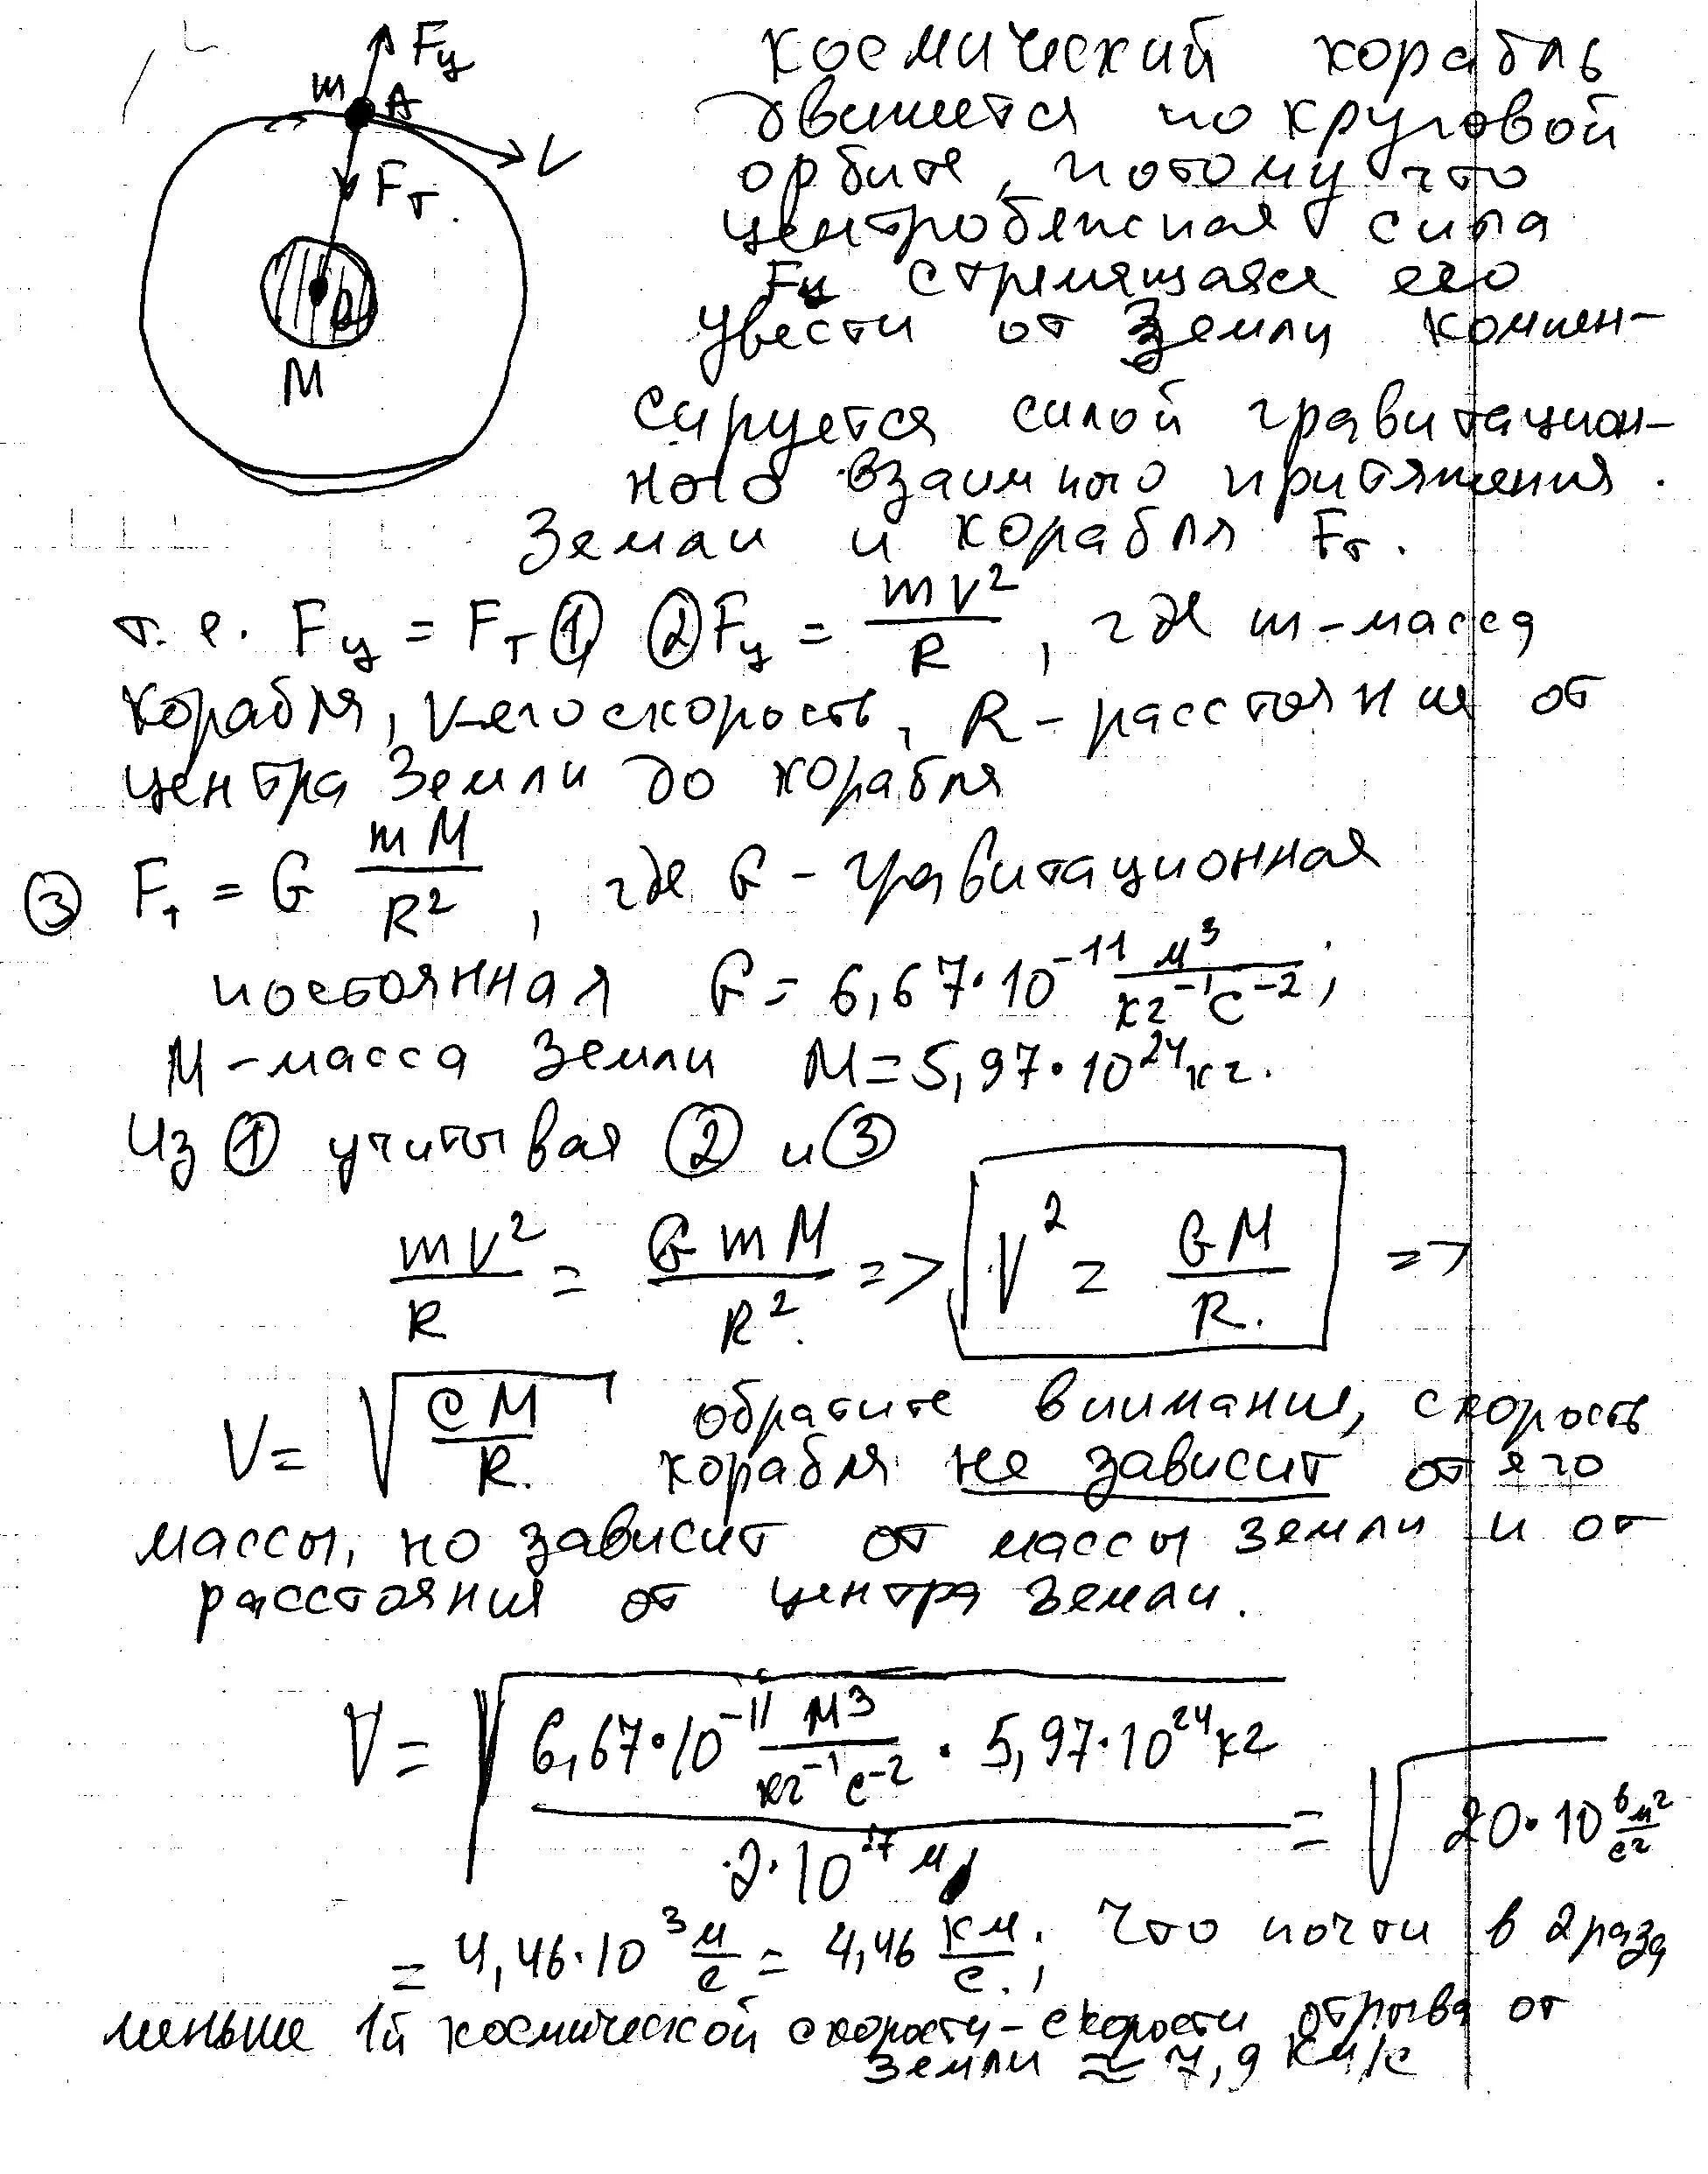 Fц
m A
V
Fт.
O
M
космический корабль
движется по круговой
орбите, потому что
центробежная сила
Fц стремящаяся его
увести от Земли компен-
сируется силой гравитацион-
ного взаимного притяжения.
Земли и корабля Fт.
т.е. Fц = Fт ① ② Fц = mV²/R, где m-масса
корабля, V-его скорость, R - расстояние от
центра Земли до корабля
③ Fт = G mM/R², где G - гравитационная
постоянная G = 6,67·10⁻¹¹ м³/кг⁻¹с⁻²;
M - масса Земли M = 5,97·10²⁴ кг.
Из ① учитывая ② и ③
mV²/R = GmM/R². => V² = GM/R. =>
V = √(GM/R.) обратите внимание, скорость
корабля не зависит от его
массы, но зависит от массы Земли и от
расстояния от центра Земли.
V = √(6,67·10⁻¹¹ м³/кг⁻¹с⁻² · 5,97·10²⁴ кг / 2·10⁷ м) = √(20·10⁶ м²/с²)
= 4,46·10³ м/с = 4,46 км/с.; что почти в 2 раза
меньше 1й космической скорости - скорости отрыва от
Земли ≈ 7,9 км/с